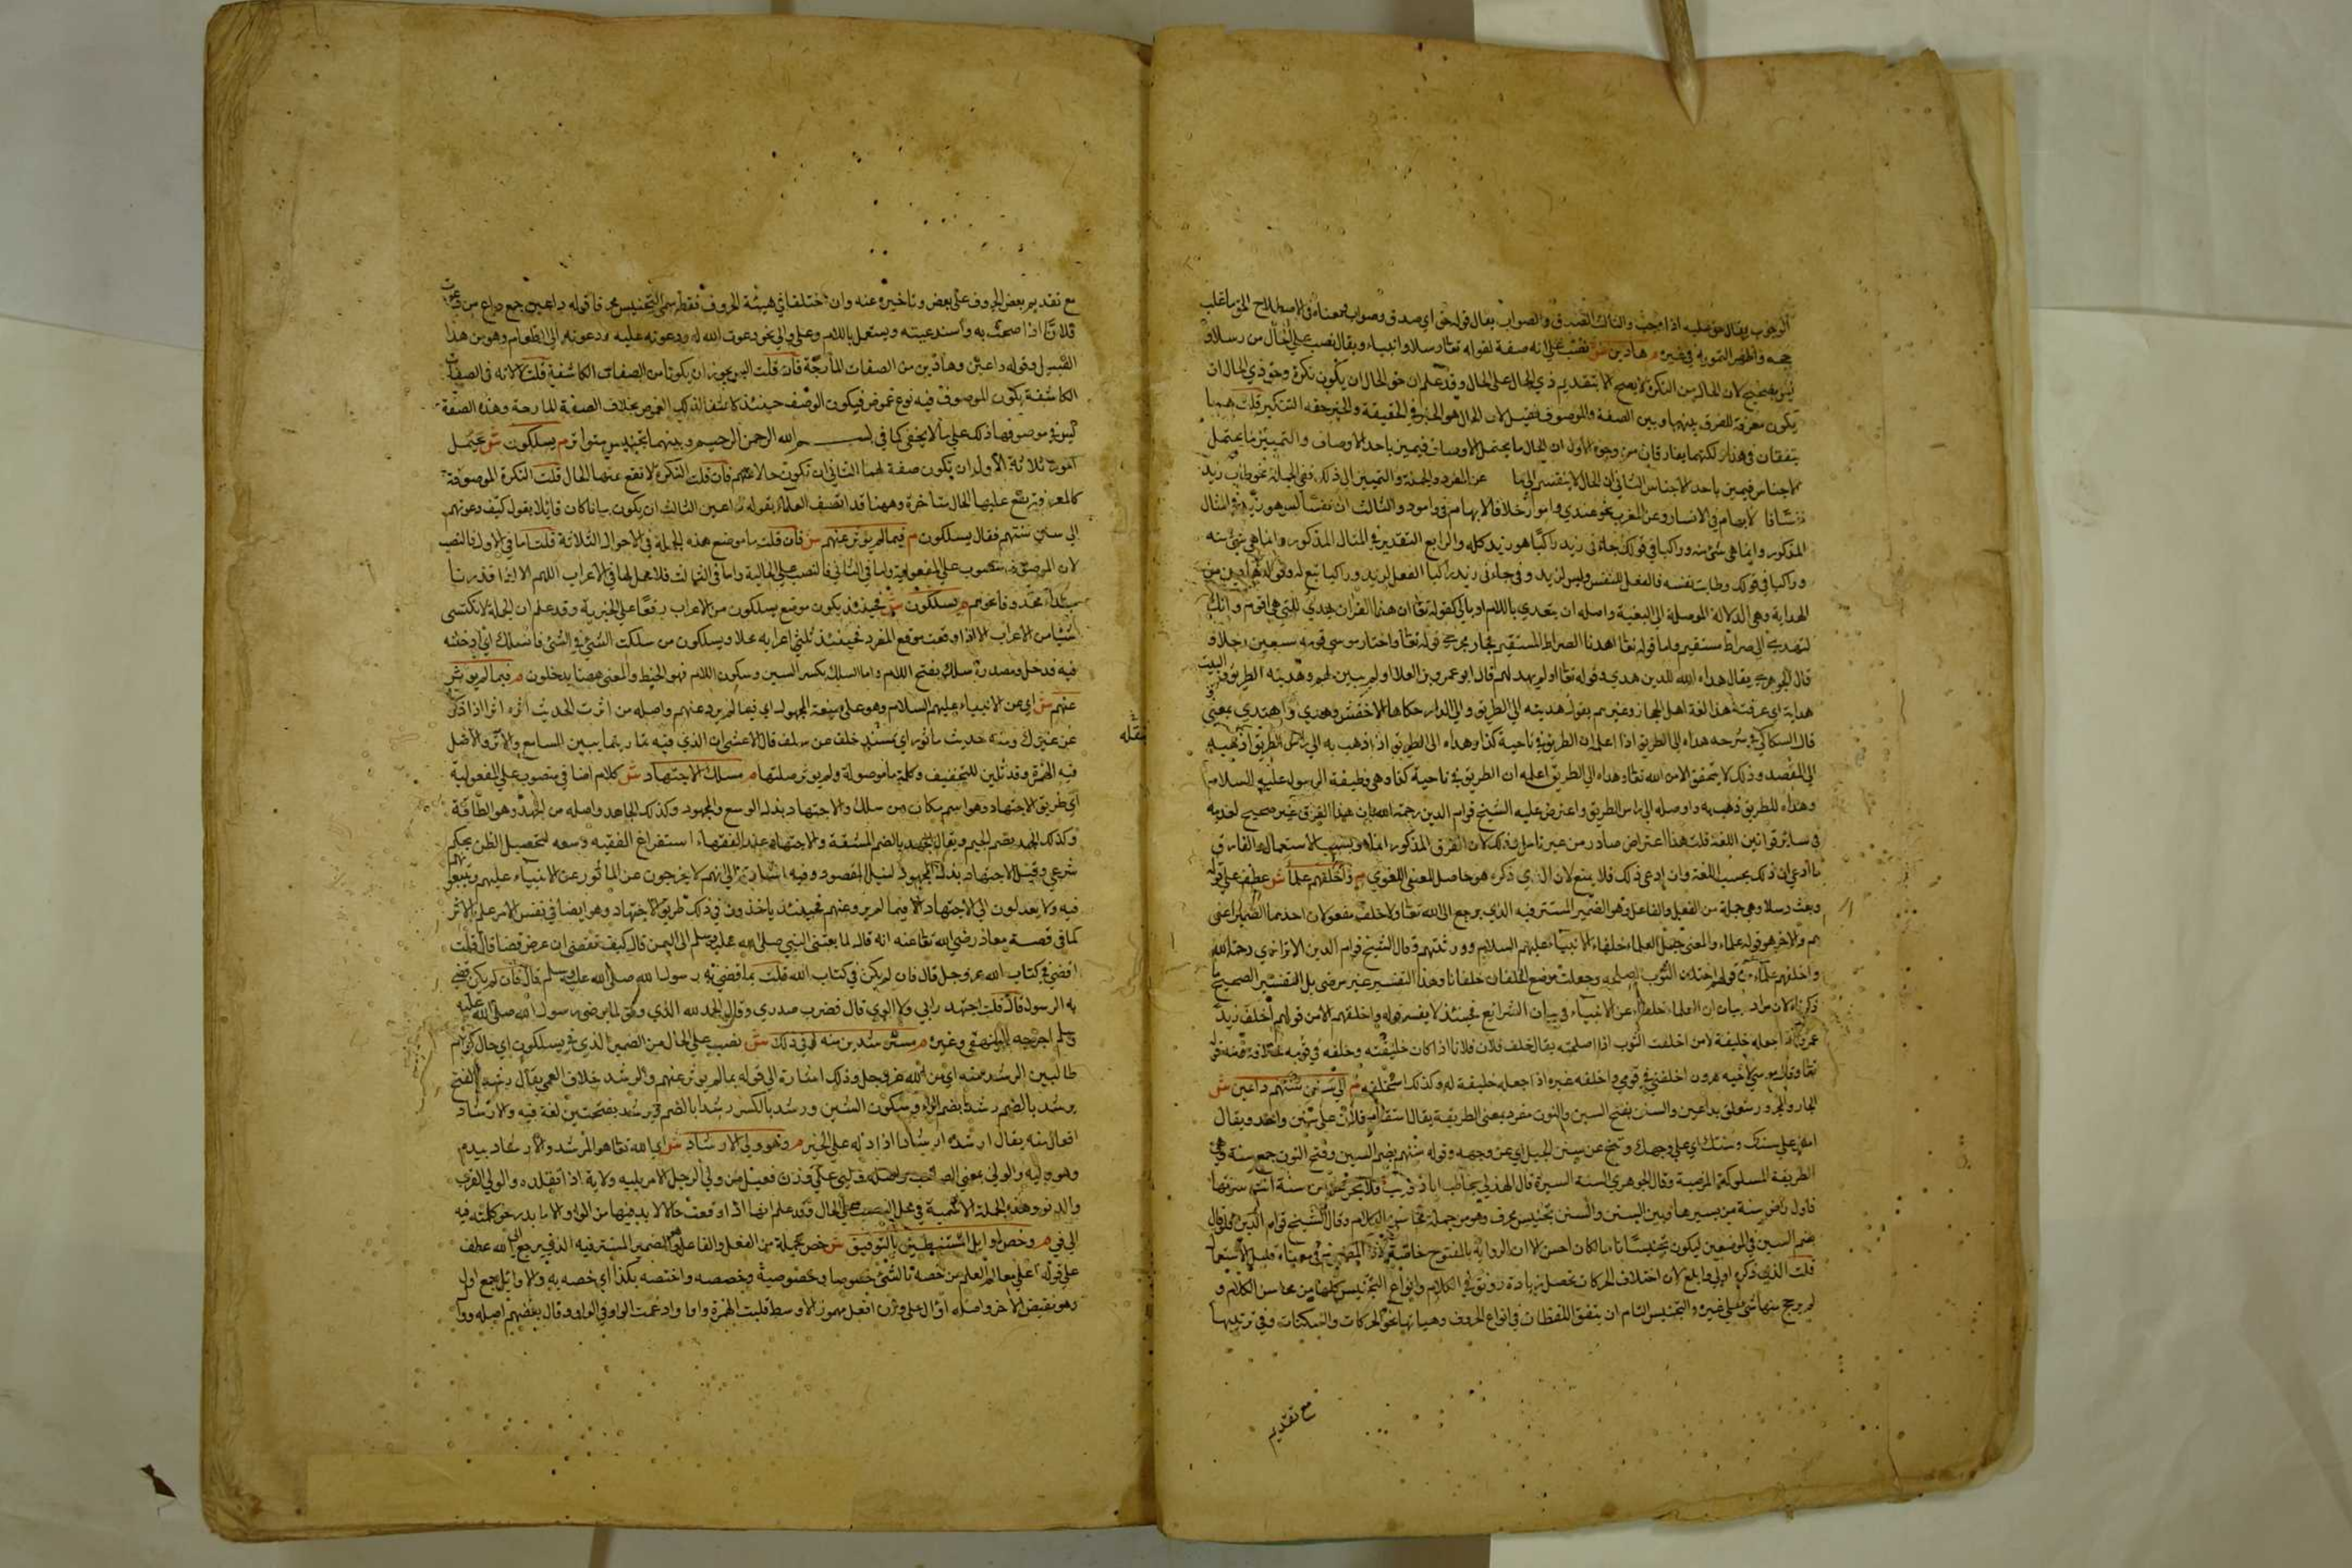 الوجوب يقال حق عليه اذا وجب والثالث الصدق والصواب يقال قوله حق اي صدق وصواب فمعناه في الاصطلاح
هادين ش نصب على انه صفة لقوله تعالى رسلا وانبياء ويقال نصب على الحال من رسلا و
ليس بصحيح لان الحال من النكرة لا يصح الا بتقديم ذي الحال على الحال وقد علم ان حق الحال ان يكون نكرة وحق ذي الحال ان
يكون معرفة للفرق بينهما وبين الصفة والموصوف فقيل لان الحال هو الخبر في الحقيقة والخبر حقه التنكير قلت هما
يتفقان في هذا ولكنهما يفارقان من وجوه الاول ان الحال ما يحتمل الاوصاف فيميز باحد الاوصاف والتمييز ما يحتمل
الاجناس فيميز باحد الاجناس الثاني ان الحال لا ينقسم الى ما عن المفرد والجملة والتمييز الى ذلك ففي الجملة نحو طاب زيد
نفسا والثالث ان نفسا ليس هو زيد في المثال
المذكور وانما هي شيء منه وراكبا في قولك جاءني زيد راكبا هو زيد كله والرابع التقدير في المثال المذكور وانما هي شيء منه
وراكبا في قولك وطابت نفسه فالفعل للنفس وليس لزيد وفي جاءني زيد راكبا الفعل لزيد وراكبا تبع له وقوله هادين من
الهداية وهي الدلالة الموصلة الى البغية واصله ان يتعدى باللام او بالى كقوله تعالى ان هذا القران يهدي للتي هي اقوم وانك
لتهدي الى صراط مستقيم واما قوله تعالى اهدنا الصراط المستقيم فجار مجرى قوله تعالى واختار موسى قومه سبعين رجلا و
قال الجوهري يقال هداه الله للدين هدى وقوله تعالى اولم يهد لهم قال ابو عمرو بن العلا اولم يبين لهم وهديته الطريق والبيت
هداية اي عرفته هذا لغة اهل الحجاز وغيرهم يقول هديته الى الطريق والى الدار حكاها الاخفش وهدى واهتدى بمعنى
قال السكاكي في شرحه هداه الى الطريق اذا اعلمه ان الطريق في ناحية كذا وهداه الى الطريق اذا اذهب به الى راس الطريق
الى المقصد وذلك لا يتحقق الا من الله تعالى وهداه الى الطريق اعلمه ان الطريق في ناحية كذا وهي وظيفة الرسول عليه السلام
وهداه للطريق ذهب به واوصله الى راس الطريق واعترض عليه الشيخ قوام الدين رحمه الله بان هذا الفرق غير صحيح
في سائر قوانين اللغة قلت هذا اعتراض صادر من غير تامل وذلك لان الفرق المذكور انما هو بحسب الاستعمال
ما ادعي ان ذلك بحسب اللغة وان ادعى ذلك فلا يمنع لان الذي ذكره هو حاصل المعنى اللغوي م واخلفهم علماء ش عطف على قوله
وبعث رسلا وهي جملة من الفعل والفاعل وهو الضمير المستتر فيه الذي يرجع الى الله تعالى ولاخلف مفعولان احدهما الضمير اعني
هم والاخر هو قوله علماء والمعنى جعل العلماء خلفاء الانبياء عليهم السلام وورثتهم وقال الشيخ قوام الدين الاترازي رحمه الله
واخلفهم علماء من قولهم اخلف الثوب اصلحه وجعلت موضع الخلقان خلفانا وهذا التفسير غير مرضي بل التفسير الصحيح ما
ذكرناه لان مراده بيان ان العلماء خلفاء عن الانبياء في بيان الشرائع فحينئذ لا يفسر قوله واخلفهم الا من قولهم اخلف زيد
عمرو اذا جعله خليفة لا من اخلفت الثوب اذا اصلحته يقال خلف فلان فلانا اذا كان خليفته وخلفه في قومه خلافة ومنه قوله
تعالى وقال موسى لاخيه هرون اخلفني في قومي واخلفه غيره اذا جعله خليفة له وكذلك استخلفه م الى سنن سنتهم داعين ش
الجار والمجرور متعلق بداعين والسنن بفتح السين والنون مفرد بمعنى الطريقة يقال استقام فلان على سنن واحد ويقال
امض على سنتك وسننك اي على وجهك وتنح عن سنن الجبل اي عن وجهه وقوله سننهم بضم السين وفتح النون جمع سنة وهي
الطريقة المسلوكة المرضية وقال الجوهري السنة السيرة قال الهذلي يخاطب ابا ذويب فلا تجزعن من سنة انت سرتها
فاول راض سنة من يسيرها وبين السنن والسنن تجنيس محرف وهو من جملة محاسن الكلام وقال الشيخ قوام الدين
بضم السين في الموضعين ليكون تجنيسا تاما لكان احسن الا ان الرواية بالفتوح
قلت الذي ذكره اولى وابلغ لان اختلاف الحركات تحصل زيادة رونق في الكلام وانواع التجنيس كلها من محاسن الكلام و
لم يرجح منها شيء على غيره والتجنيس التام ان يتفق اللفظان في انواع الحروف وهيئاتها نحو الحركات والسكنات وفي ترتيبها
مع تقديم
مع تقديم بعض الحروف على بعض وتاخيره عنه وان اختلفا في هيئة الحروف فقط سمي التجنيس محرفا قوله داعين جمع داع من دعوت
فلانا اذا صحت به واستدعيته ويستعمل باللام وعلى والى نحو دعوت الله له ودعوته عليه ودعوته الى الطعام وهو من هذا
القبيل وقوله داعين وهادين من الصفات المادحة فان قلت اليس يجوز ان يكونا من الصفات الكاشفة قلت لا لانه في الصفات
الكاشفة يكون الموصوف فيه نوع غموض فيكون الوصف حينئذ كاشفا لذلك الغموض بخلاف الصفة المادحة وهذه الصفة
ليس في موصوفها ذلك على ما لا يخفى كما في بسم الله الرحمن الرحيم وبينهما تجنيس متوازن م يسلكون ش يحتمل
امورا ثلاثة الاول ان يكون صفة لهما الثاني ان تكون حالا عنهم فان قلت النكرة لا تقع عنها الحال قلت النكرة الموصوفة
كالمعرفة يقع عليها الحال متاخرة وههنا قد اتصف العلماء بقوله داعين الثالث ان يكون بيانا كان قائلا يقول كيف دعوتهم
الى سنن سنتهم فقال يسلكون م فيما لم يؤثر عنهم ش فان قلت ما موضع هذه الجملة في الاحوال الثلاثة قلت اما في الاول فالنصب
لان الموصوف منصوب على المفعولية واما في الثاني فالنصب على الحالية واما في الثالث فلا محل لها في الاعراب اللهم الا اذا قدرنا
مبتدأ محذوفا نحو هم يسلكون فحينئذ يكون موضع يسلكون من الاعراب رفعا على الخبرية وقد علم ان الجملة لا تكتسي
شيئا من الاعراب الا اذا وقعت موقع المفرد فحينئذ اعرابه محلا ويسلكون من سلكت الشيء في الشيء فانسلك اي ادخلته
فيه فدخل ومصدره سلك بفتح اللام واما السلك بكسر السين وسكون اللام فهو الخيط والمعنى ههنا يدخلون م فيما لم يؤثر
عنهم ش اي عن الانبياء عليهم السلام وهو على صيغة المجهول اي فيما لم يرد عنهم واصله من اثرت الحديث اثره اثرا اذا ذكرته
عن غيرك ومنه حديث ماثور اي يسنده خلف عن سلف قال الاعشى ان الذي فيه تماريتما بين للسامع والاثر والاصل
نقله
فيه الهمزة وقد تلين للتخفيف وكلمة ما موصولة ولم يؤثر صلتها م مسلك الاجتهاد ش كلام اضافي منصوب على المفعولية
اي طريق الاجتهاد وهو اسم مكان من سلك والاجتهاد بذل الوسع والمجهود وكذلك المجاهد واصله من الجهد وهو الطاقة
وكذلك الجهد بضم الجيم ويقال الجهد بالضم المشقة والاجتهاد عند الفقهاء استفراغ الفقيه وسعه لتحصيل الظن بحكم
شرعي وقيل الاجتهاد بذل المجهود لنيل المقصود وفيه اشارة الى انهم لا يخرجون عن الماثور عن الانبياء عليهم
فيه ولا يعدلون الى الاجتهاد الا فيما لم يرو عنهم فحينئذ ياخذون في ذلك طريق الاجتهاد وهو ايضا في نفس الامر علم الاثر
كما في قصة معاذ رضي الله تعالى عنه انه قال لما بعثني النبي صلى الله عليه وسلم الى اليمن قال كيف تقضي ان عرض قضا قال قلت
اقضي في كتاب الله عز وجل قال فان لم يكن في كتاب الله قلت بما قضى به رسول الله صلى الله عليه وسلم قال فان لم يكن قضى
به الرسول قال قلت اجتهد رايي ولا الوي قال فضرب صدري وقال الحمد لله الذي وفق لما يرضي رسول الله صلى الله عليه
وسلم اخرجه البيهقي وغيره م مسترشدين منه في ذلك ش نصب على الحال من الضمير الذي في يسلكون اي حال كونهم
طالبين الرشد منه اي من الله عز وجل وذلك اشارة الى قوله بما لم يؤثر عنهم والرشد خلاف العمي يقال رشد بالفتح
يرشد بالضم رشدا بضم الراء وسكون الشين ورشد بالكسر رشدا بالضم في يرشد بفتحتين لغة فيه والارشاد
افعال منه يقال ارشده ارشادا اذا دله على الخير م وهو ولي الارشاد ش اي الله تعالى هو المرشد والارشاد بيده
وهو وليه والولي بمعنى الصاحب واصله ولي على وزن فعيل من ولي الرجل الامر يليه ولاية اذا تقلده والولي القرب
والدنو وهذه الجملة الاسمية في محل النصب على الحال وقد علم انها اذا وقعت حالا لا بد فيها من الواو الا ما ندر نحو كلمته فوه
الى في م وخص اوايل المستنبطين بالتوفيق ش خص جملة من الفعل والفاعل وهو الضمير المستتر فيه الذي يرجع الى الله عطف
على قوله اعلى معالم العلم من خصه بالشيء خصوصا وخصوصية وخصصه واختصه بكذا اي خصه به والاوايل جمع اول
وهو نقيض الاخر واصله اوأل على وزن افعل مهموز الاوسط قلبت الهمزة واوا وادغمت الواو في الواو وقال بعضهم اصله ووأل